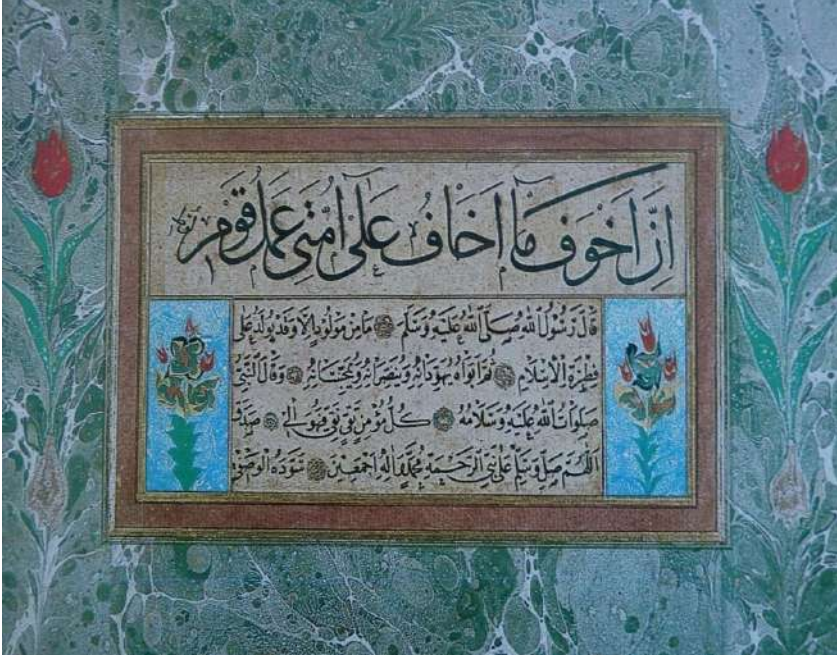 اِنَّ اَخْوَفَ مَا اَخَافُ عَلٰى اُمَّتِى عَمَلُ قَوْمِ
قَالَ رَسُولُ اللّٰهِ صَلَّى اللّٰهُ عَلَيْهِ وَسَلَّمَ مَا مِنْ مَوْلُودٍ اِلَّا وَقَدْ يُولَدُ عَلٰى
فِطْرَةِ الْاِسْلَامِ ثُمَّ اَبَوَاهُ يُهَوِّدَانِهِ وَيُنَصِّرَانِهِ وَيُمَجِّسَانِهِ وَقَالَ النَّبِىُّ
صَلَوَاتُ اللّٰهِ عَلَيْهِ وَسَلَامُهُ كُلُّ مُؤْمِنٍ تَقِىٍّ نَقِىٍّ فَهُوَ اٰلِى
اَللّٰهُمَّ صَلِّ وَسَلِّمْ عَلٰى نَبِىِّ الرَّحْمَةِ مُحَمَّدٍ وَاٰلِهِ اَجْمَعِينَ